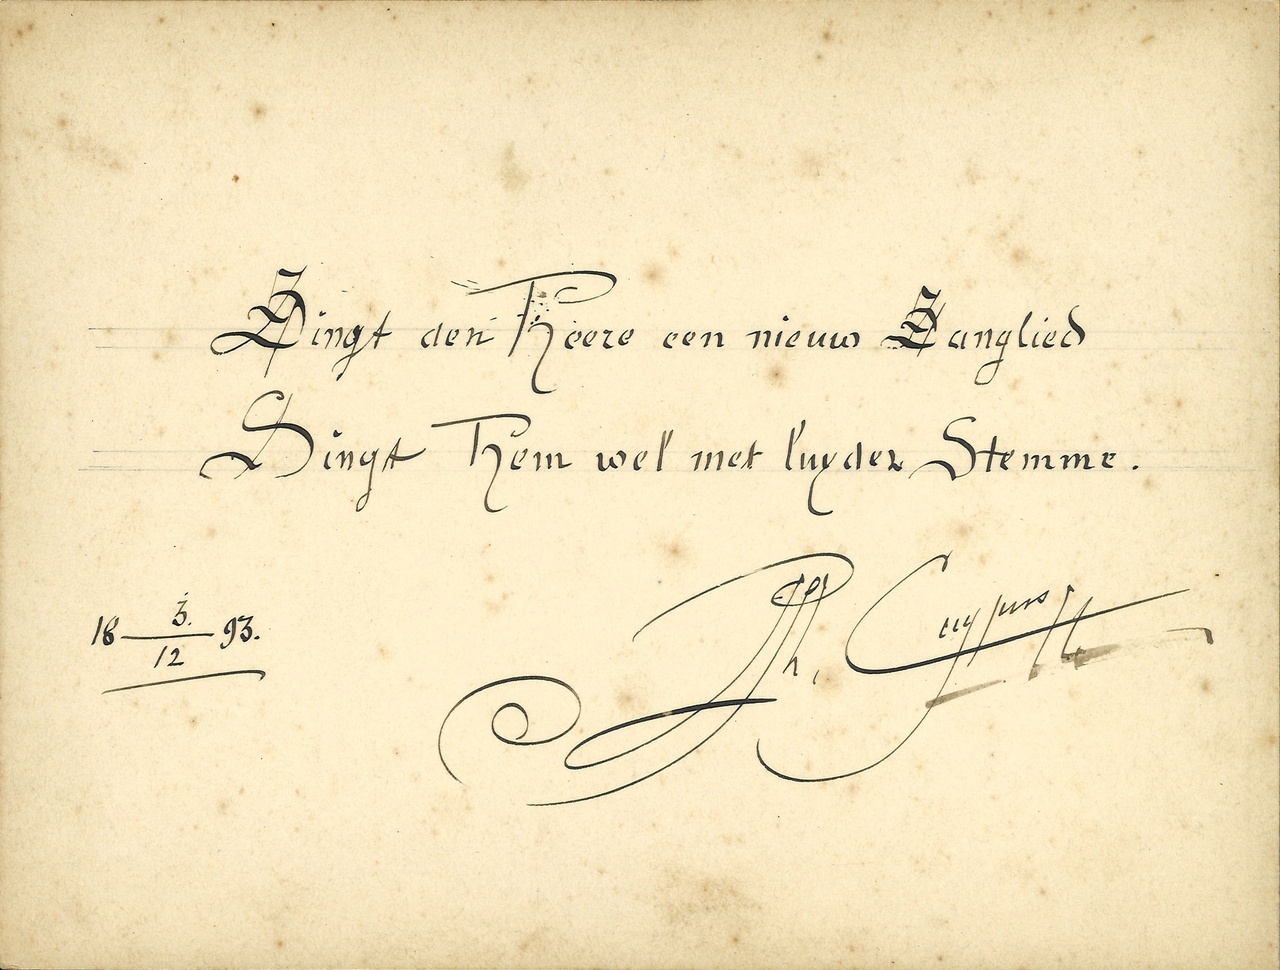 Singt den Heere een nieuw Sanglied
Singt Hem wel met luyder Stemme.
18 3/12 93.
Cuypers